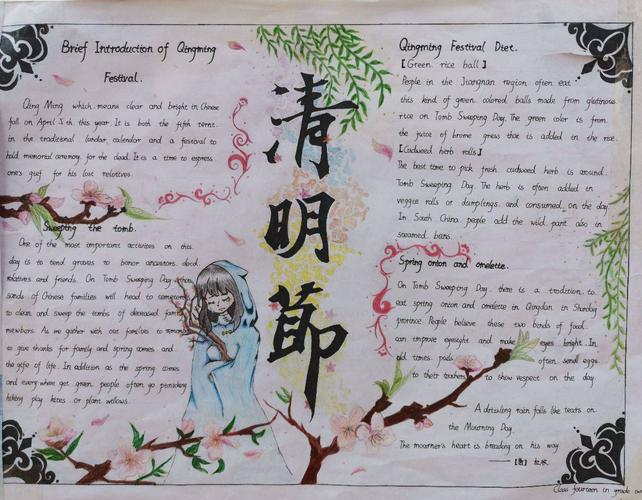 Brief Introduction of Qingming
Festival.
Qing Ming which means clear and bright in Chinese
fall on April 5th this year. It is both the fifth term
in the traditional lunar calendar and a festival to
hold memorial ceremony for the dead. It is a time to express
one's grief for his lost relatives.
Sweeping the tomb.
One of the most important activities on this
day is to tend graves to honor ancestors, dead
relatives and friends. On Tomb Sweeping Day,
sands of Chinese families will head to
to clean and sweep the tombs of deceased
members. As me gather with our families to
to gave thanks for family and spring comes and
the gife of life. In addition as the spring comes
and every where get green, people often go picnicking
hiking play kites or plant willows.
清明節
Qingming Festival Diet.
【Green rice ball】
People in the Jiangnan region often eat
this kind of green colored balls made from glutinous
rice on Tomb Sweeping Day. The green color is from
the juice of brome grass that is added in the rice.
【Cudweed herb rolls】
The best time to pick fresh cudweed herb is around
Tomb Sweeping Day. The herb is often added in
veggie rolls or dumplings, and consumed on the day
In South China, people add the wild plant also in
steamed buns.
Spring onion and omelette.
On Tomb Sweeping Day, there is a tradition to
eat spring onion and omelette in Qingdan in Shandong
province. People believe these two kinds of food
can improve eyesight and make eyes bright. In
old times, often send eggs
to their teachers to show respect on the day.
A drizzling rain falls like tears on
the Mourning Day.
The mourner's heart is breaking on his way
——【唐】杜牧
Class fourteen in grade